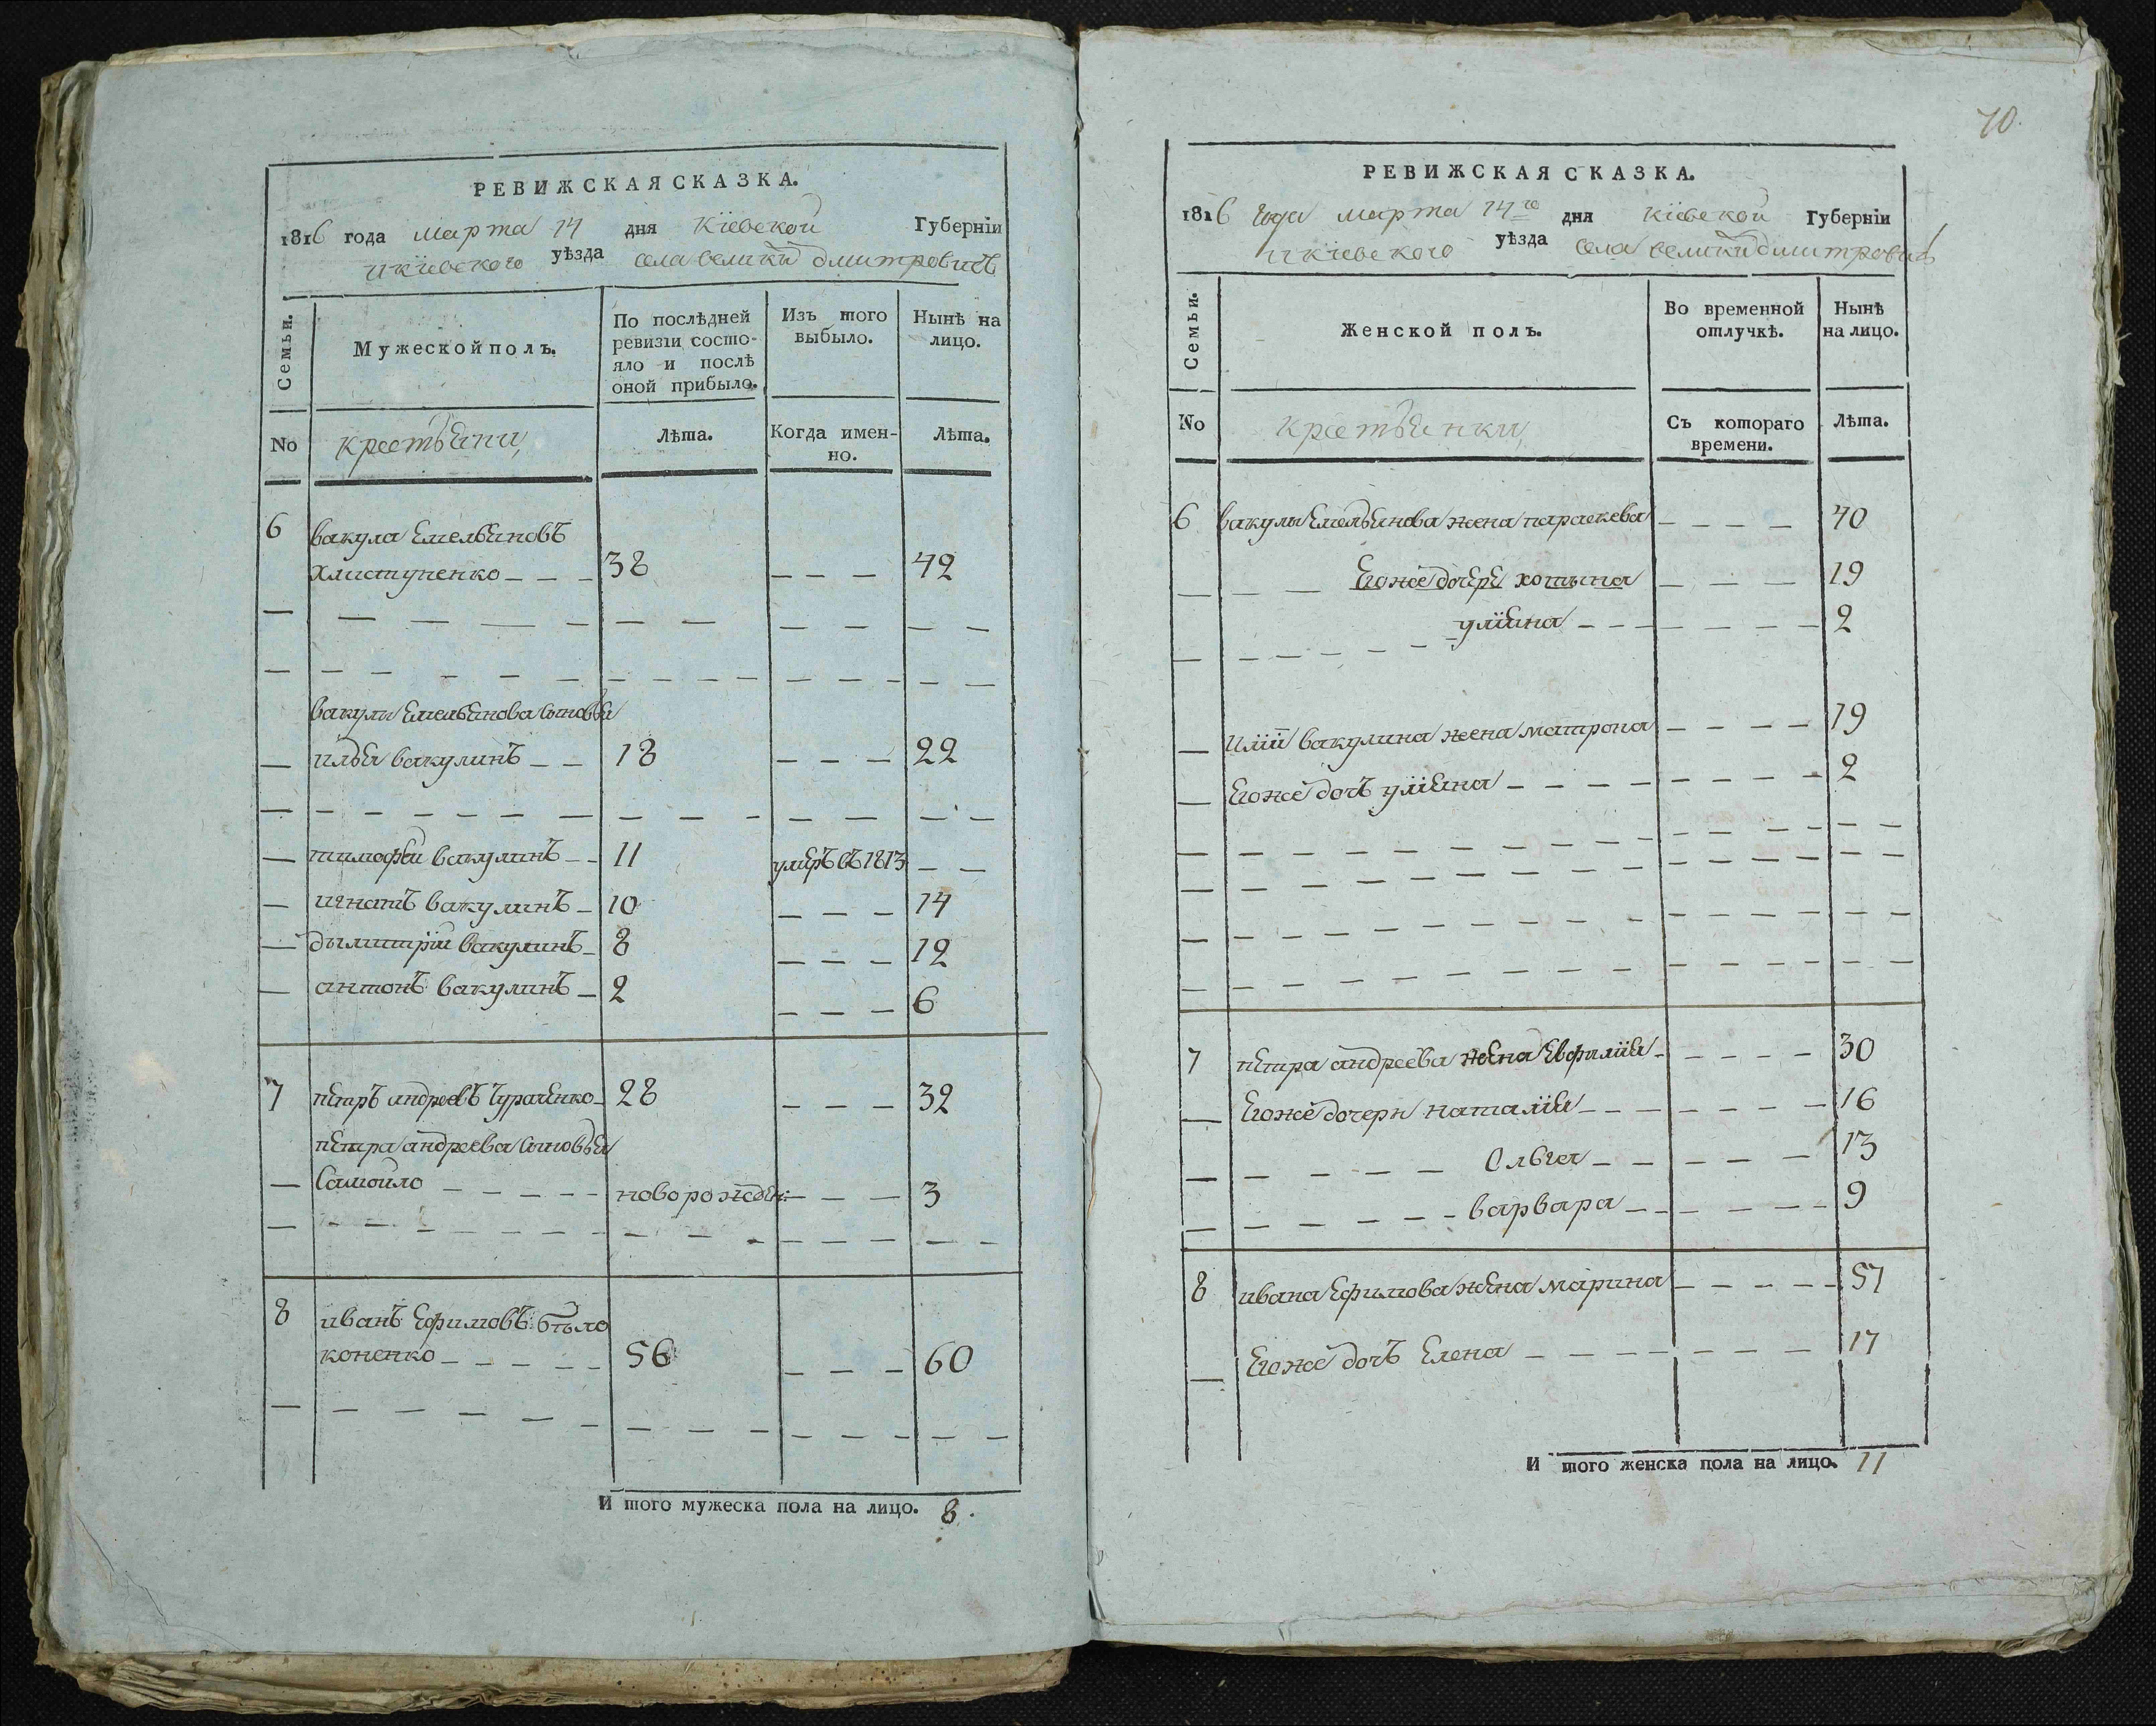 РЕВИЖСКАЯ СКАЗКА.
1816 года марта 14 дня Кіевской Губерніи
икіевского уѣзда села велики дмитровичъ
Семьи.
Мужеской полъ.
По послѣдней ревизіи состояло и послѣ оной прибыло.
Изъ того выбыло.
Нынѣ на лицо.
No крестьяни
Лѣта.
Когда именно.
Лѣта.
6 вакула Емельяновъ
хлистуненко 38 42
вакулы Емельянова сыновья
илья вакулинъ 18 22
тимофей вакулинъ 11 умеръ въ 1813
игнатъ вакулинъ 10 14
дымитрій вакулинъ 8 12
антонъ вакулинъ 2 6
7 петръ андреевъ 28 32
петра андреева сыновья
Самойло новорожден: 3
8 иванъ Ефимовъ было
коненко 56 60
И того мужеска пола на лицо. 8.
70.
РЕВИЖСКАЯ СКАЗКА.
1816 года марта 14го дня кіевской Губерніи
икіевского уѣзда села велики дмитровичъ
Семьи.
Женской полъ.
Во временной отлучкѣ.
Нынѣ на лицо.
No крестьянки
Съ котораго времени.
Лѣта.
6 вакулы Емельянова жена параскева 40
Егоже дочери хотына 19
уліяна 2
иліи вакулина жена матрона 19
Егоже дочъ уліяна 2
7 петра андреева жена Евфимія 30
Егоже дочери наталія 16
Ольга 13
варвара 9
8 ивана Ефимова жена марина 57
Егоже дочъ Елена 17
И того женска пола на лицо. 11